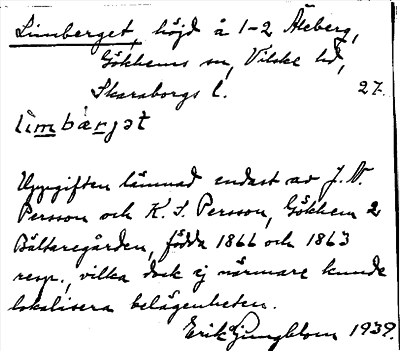 Limberget, höjd å 1-2 Åleberg,
Gökhems sn, Vilske hd,
Skaraborgs l. 27.
limbærjət
Uppgiften lämnad endast av J. A.
Persson och K. S. Persson, Gökhem 2
Bältaregården, födda 1866 och 1863
resp., vilka dock ej närmare kunde
lokalisera belägenheten.
Erik Ljungblom 1939.